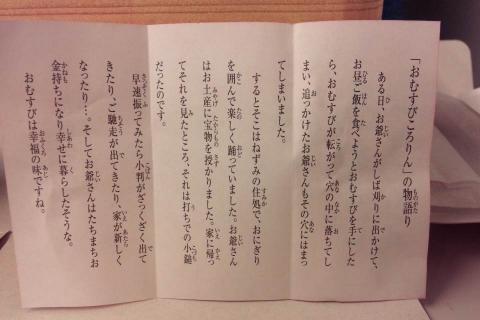 「おむすびころりん」の物語り
ある日、お爺さんがしば刈りに出かけて、
お昼ご飯を食べようとおむすびを手にした
ら、おむすびが転がって穴の中に落ちてし
まい、追っかけたお爺さんもその穴にはまっ
てしまいました。
するとそこはねずみの住処で、おにぎり
を囲んで楽しく踊っていました。お爺さん
はお土産に宝物を授かりました。家に帰っ
てそれを見たところ、それは打ちでの小鎚
だったのです。
早速振ってみたら小判がざっくざく出て
きたり、ご馳走が出てきたり、家が新しく
なったり…。そしてお爺さんはたちまちお
金持ちになり幸せに暮らしたそうな。
おむすびは幸福の味ですね。